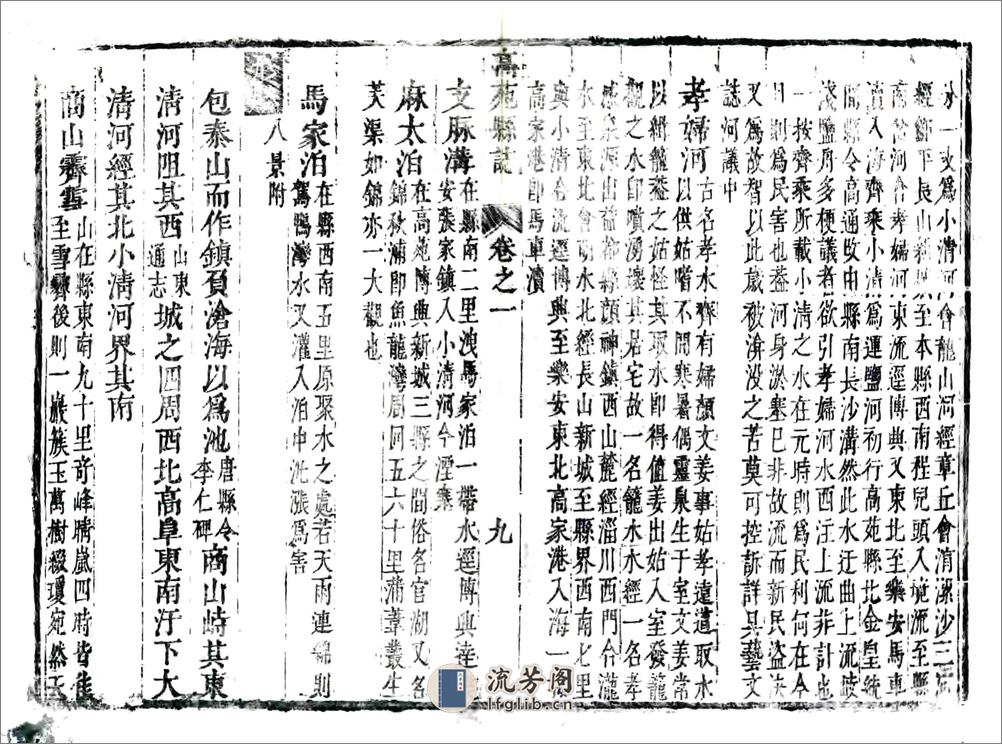 水一支爲小清河會龍山河經章丘會淯漯沙三河
經鄒平長山新城至本縣西南程兒頭入境流至
商岔河合孝婦河東流逕博興又東北至樂安馬車
瀆入海齊乘小清河爲運鹽河初行高苑縣北金皇統
間縣令高通改由縣南長沙溝然此水迂曲上流岐
淺鹽舟多梗議者欲引孝婦河水西注上流非計也
一按齊乘所載小清之水在元時則爲民利何在今
日則爲民害也蓋河身淤塞已非故流而新民盜決
又爲故智以此歲被渰没之苦莫可控訴詳具藝文
誌河議中
孝婦河古名孝水齊有婦顏文姜事姑孝遠道取水
以供姑嗜不問寒暑偶靈泉生于室文姜常
以緝籠蓋之姑怪其取水即得值姜出姑入室發籠
觀之水即噴湧壞其居宅故一名籠水水經一名孝
感泉源出益都縣顏神鎮西山麓經淄川西門合瀧
水至東北會明水北經長山新城至縣界西南七里
與小清合流逕博興至樂安東北高家港入海一
高家港即馬車瀆
支脉溝在縣南二里洩馬家泊一帶水逕博興達
安張家鎮入小清河今湮塞
麻大泊在高苑博興新城三縣之間俗名官湖又名
錦秋浦即魚龍灣周回五六十里蒲葦叢生
芙渠如錦亦一大觀也
馬家泊在縣西南五里原聚水之處若天雨連綿則
鴛鴨灣水又灌入泊中汎漲爲害
八景附
包泰山而作鎮負滄海以爲池唐縣令李仁碑商山峙其東
清河阻其西山東通志城之四周西北高阜東南汙下大
清河經其北小清河界其南
商山霽雪山在縣東南九十里奇峰晴嵐四時皆佳
至雪霽後則一巖族玉萬樹綴瓊宛然玉
高苑縣誌
卷之一
九
流芳阁
lfglib.cn